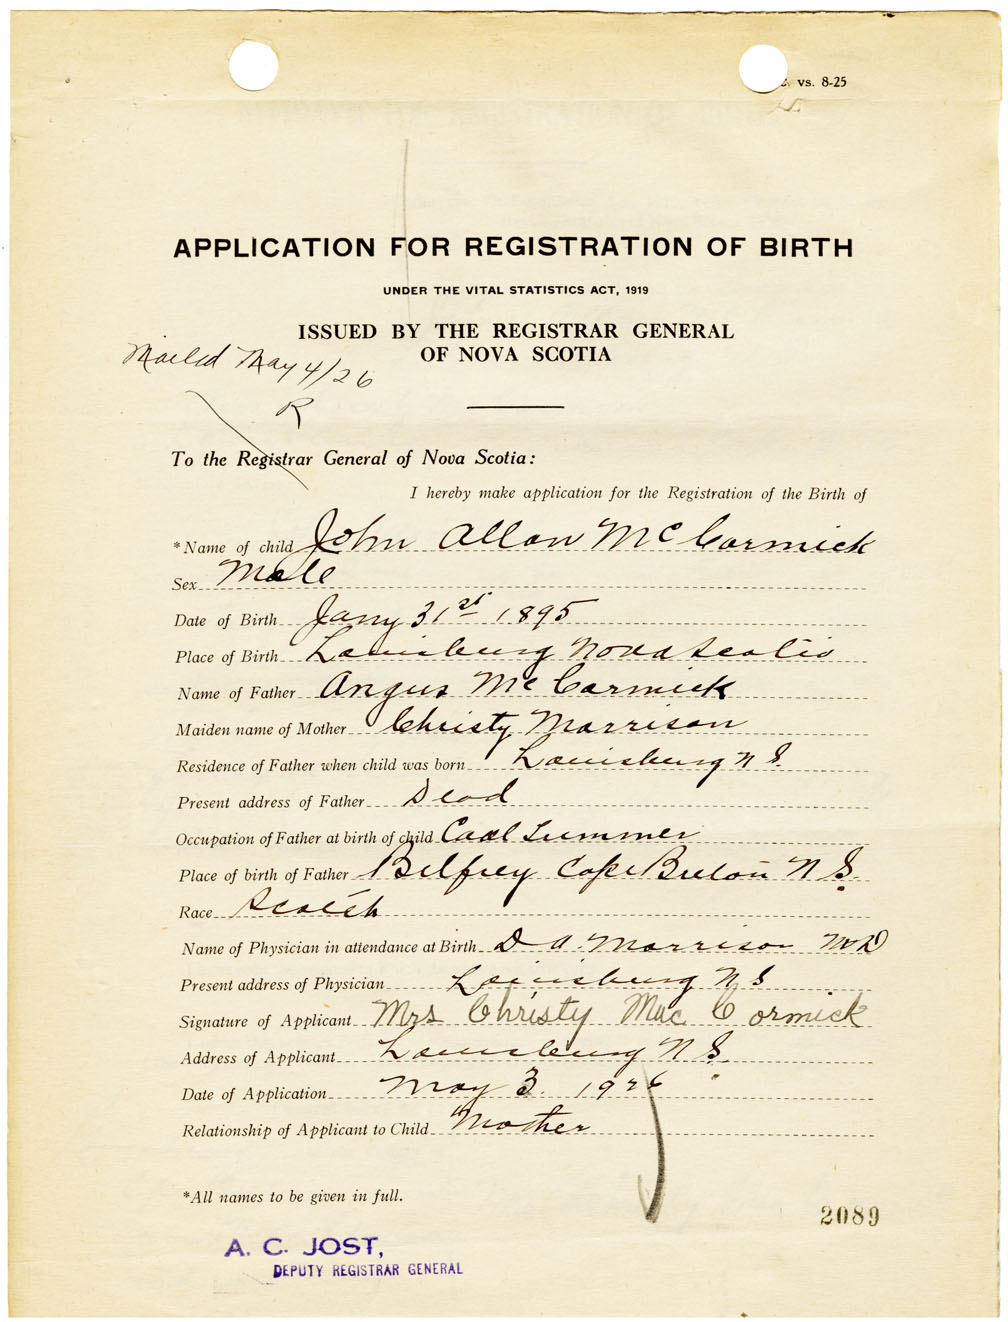 vs. 8-25
APPLICATION FOR REGISTRATION OF BIRTH
UNDER THE VITAL STATISTICS ACT, 1919
ISSUED BY THE REGISTRAR GENERAL
OF NOVA SCOTIA
Mailed May 4/26
R
To the Registrar General of Nova Scotia:
I hereby make application for the Registration of the Birth of
*Name of child John Allan McCormick
Sex Male
Date of Birth Jany 31st 1895
Place of Birth Louisburg Nova Scotia
Name of Father Angus McCormick
Maiden name of Mother Christy Morrison
Residence of Father when child was born Louisburg N S.
Present address of Father Dead
Occupation of Father at birth of child Coal
Place of birth of Father Belfrey Cape Breton N S.
Race Scotch
Name of Physician in attendance at Birth D A. Morrison M D
Present address of Physician Louisburg N S
Signature of Applicant Mrs Christy Mac Cormick
Address of Applicant Louisburg N S.
Date of Application May 3. 1926
Relationship of Applicant to Child Mother
*All names to be given in full.
2089
A. C. JOST,
DEPUTY REGISTRAR GENERAL